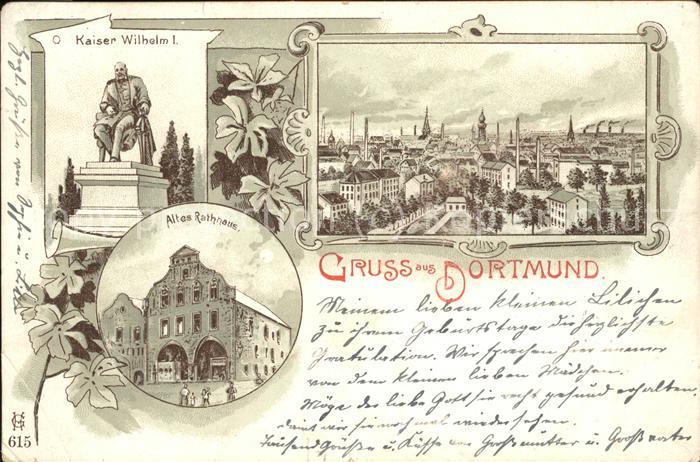 Kaiser Wilhelm I.
Altes Rathhaus.
GRUSS aus DORTMUND.
Meinem lieben kleinen Lilichen
zu ihrem Geburtstage die herzlichste
Gratulation. Wir sprechen hier immer
von dem kleinen lieben Mädchen.
Möge der liebe Gott sie recht gesund erhalten,
damit wir sie noch mal wiedersehen.
Tausend Grüße u. Küsse von Großmutter u. Großvater
Grüße von
615